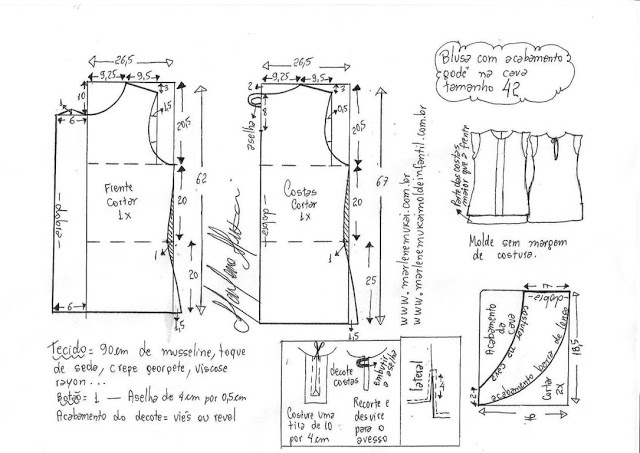 Blusa com acabamento
"godê" na cava
tamanho 42
26,5
9,25
9,5
10
3
1,5
6
20,5
62
20
20
1
6
1,5
Frente
Cortar
1x
-dobra-
26,5
9,25
9,5
2
3
8
0,5
aselha
20,5
67
20
25
1
1,5
Costas
Cortar
1x
-dobra-
Marlene Mukai
www.marlenemukai.com.br
www.marlenemukaimoldeinfantil.com.br
Parte das costas
maior que a frente
Molde sem margem
de costura.
7
-dobra-
18,5
2
Acabamento
da
cava
costurar
na cava
acabamento barra de lenço
Cortar
2x
Tecido = 90cm de musseline, toque
de seda, crepe georgete, viscose
rayon...
Botão = 1 — Aselha de 4cm por 0,5cm
Acabamento do decote = viés ou revel
decote
costas
Embutir
a aselha
lateral
Costure uma
tira de 10
por 4cm
Recorte e
desvire
para o
avesso